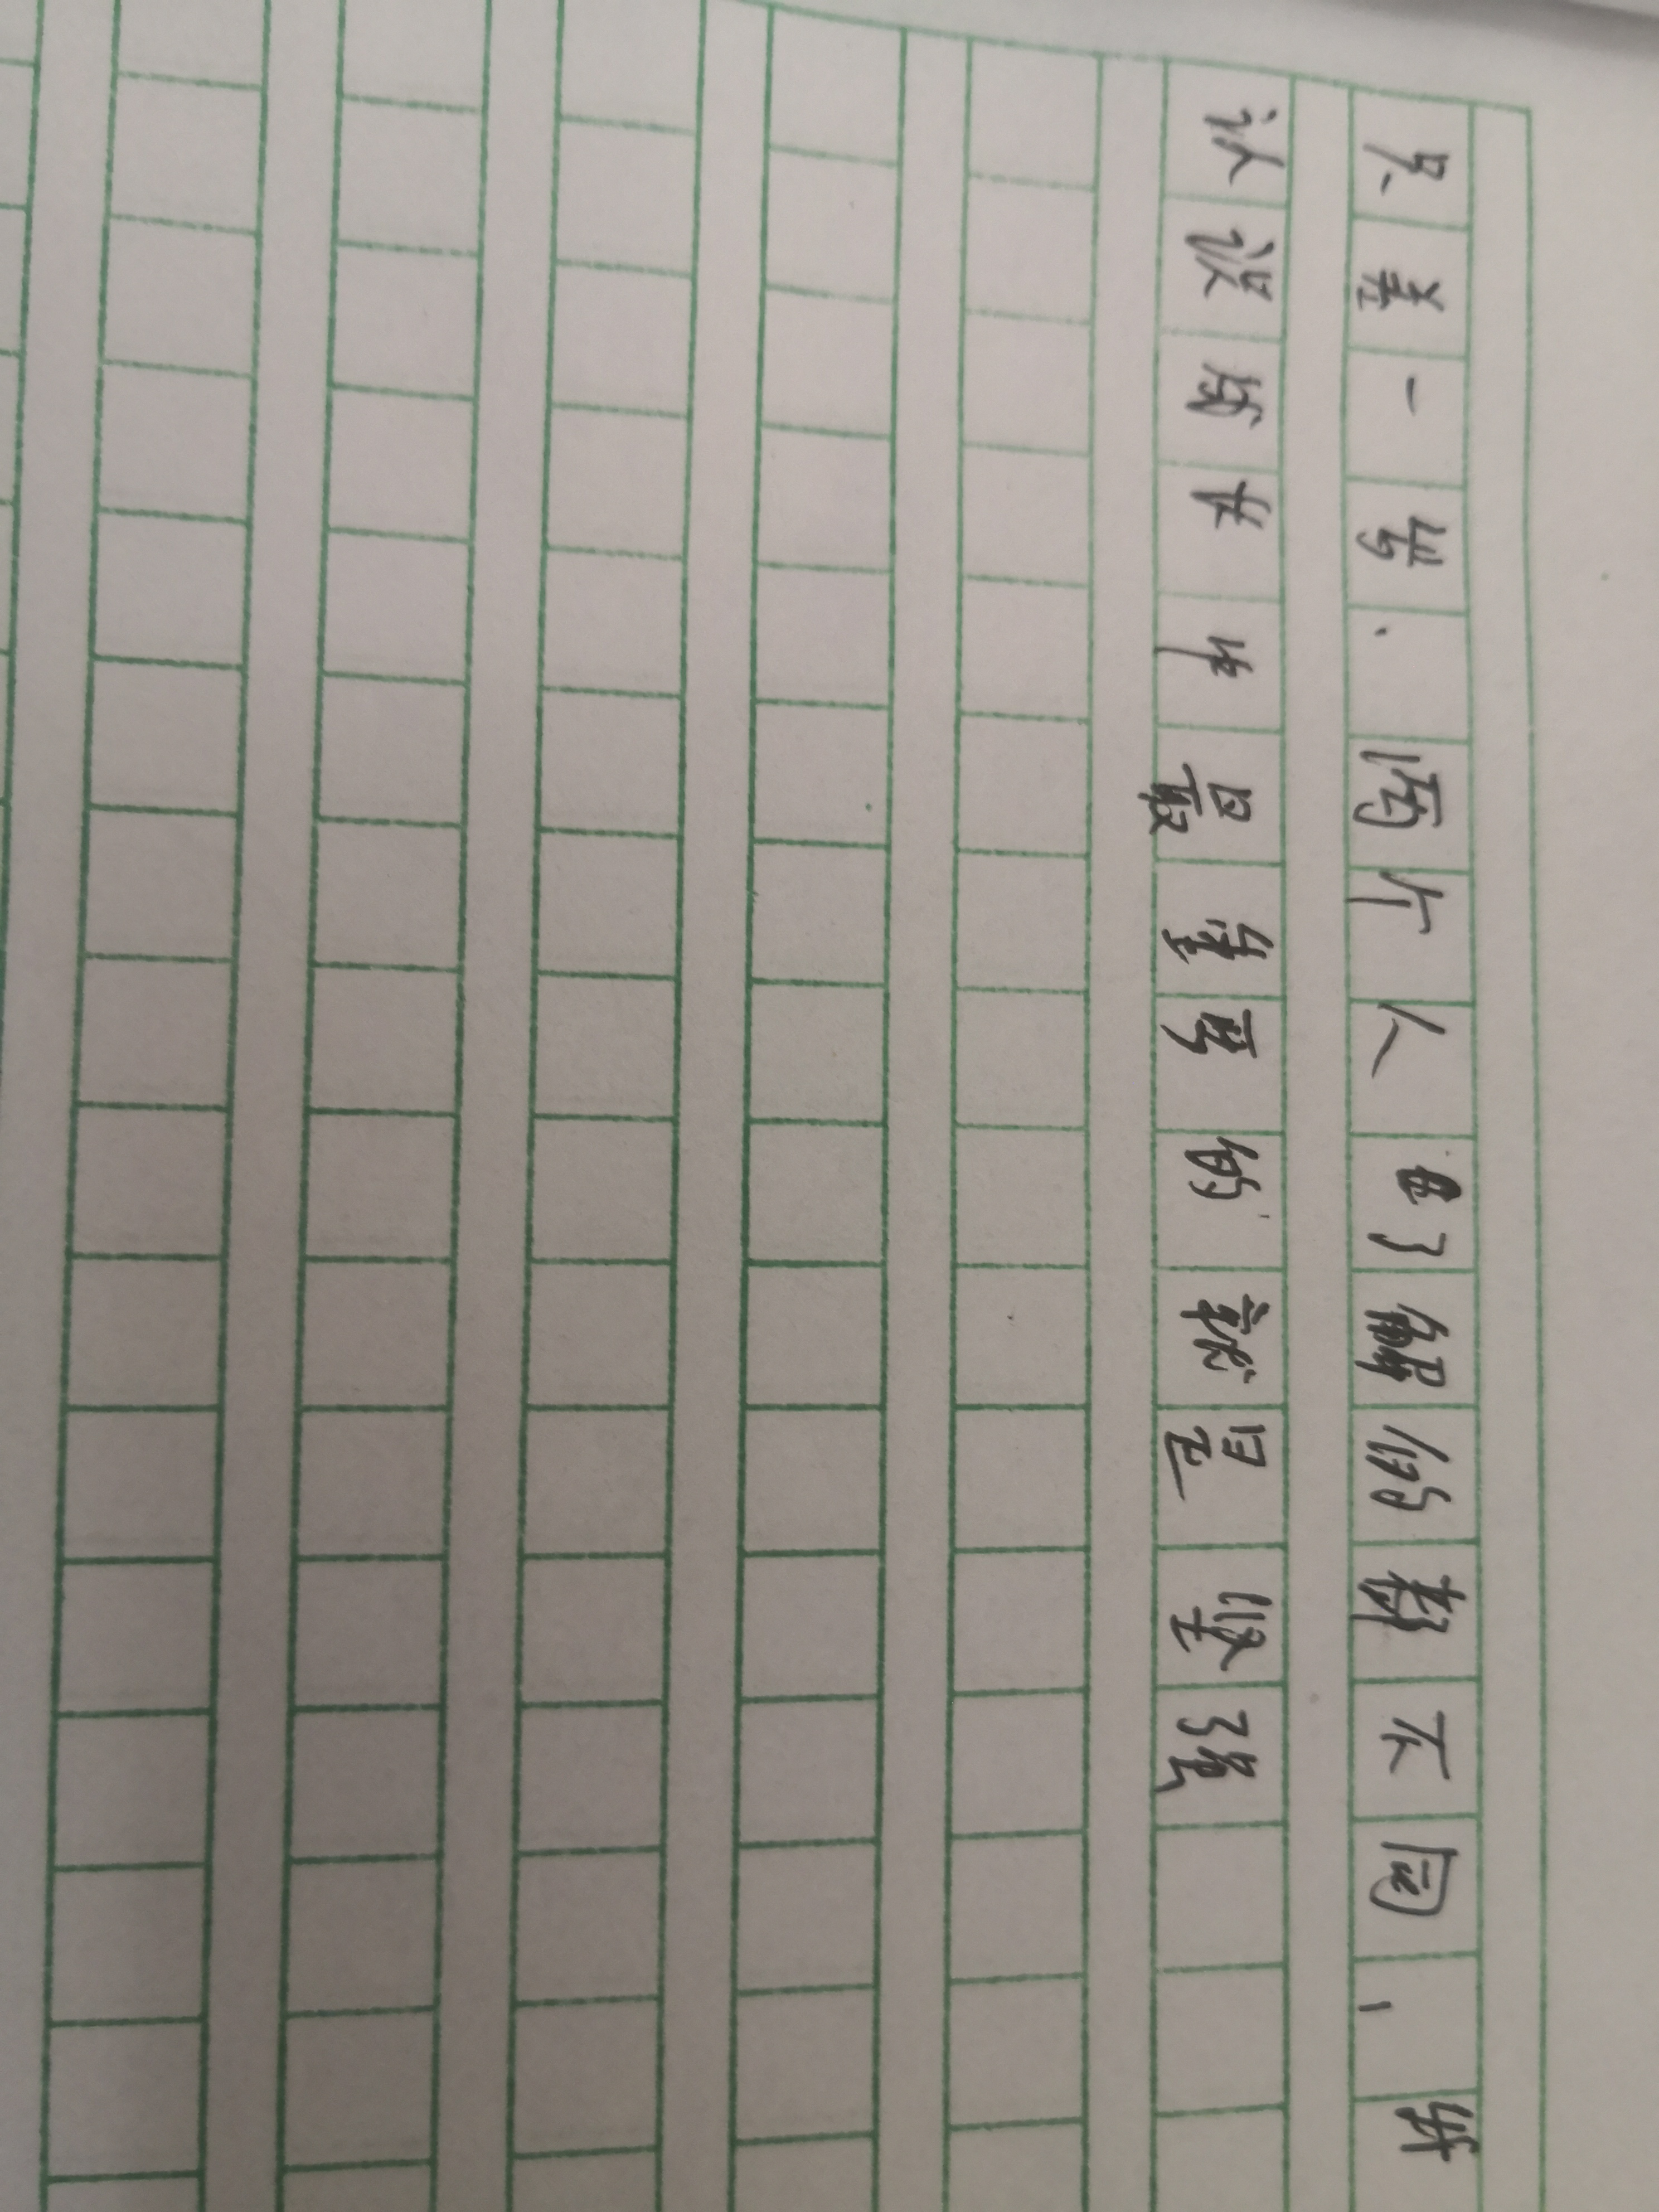 只差一岁、两个人了解的都不同，
认识中最重要的就是坚强